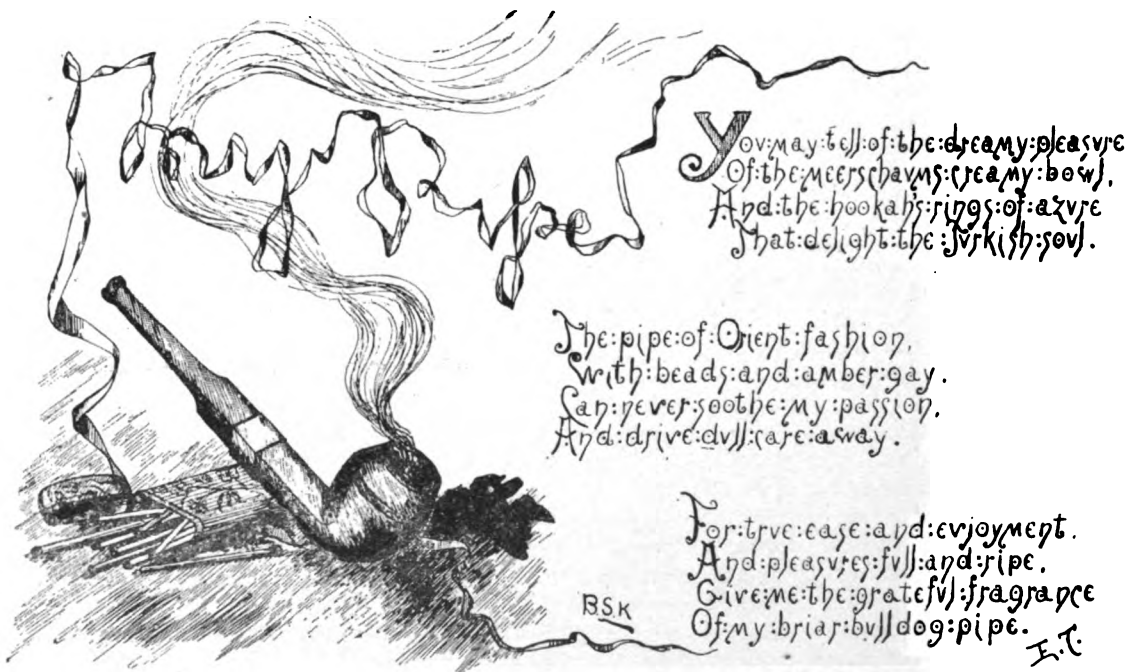 Yov:may:tell:of:the:dreamy:pleasvre
Of:the:meerschavms:creamy:bowl,
And:the:hookah's:rings:of:azvre
That:delight:the:Tvrkish:sovl.
The:pipe:of:Orient:fashion,
With:beads:and:amber:gay.
Can:never:soothe:my:passion,
And:drive:dvll:care:away.
For:trve:ease:and:enjoyment.
And:pleasvres:fvll:and:ripe,
Give:me:the:gratefvl:fragrance
Of:my:briar:bvlldog:pipe.
BSK